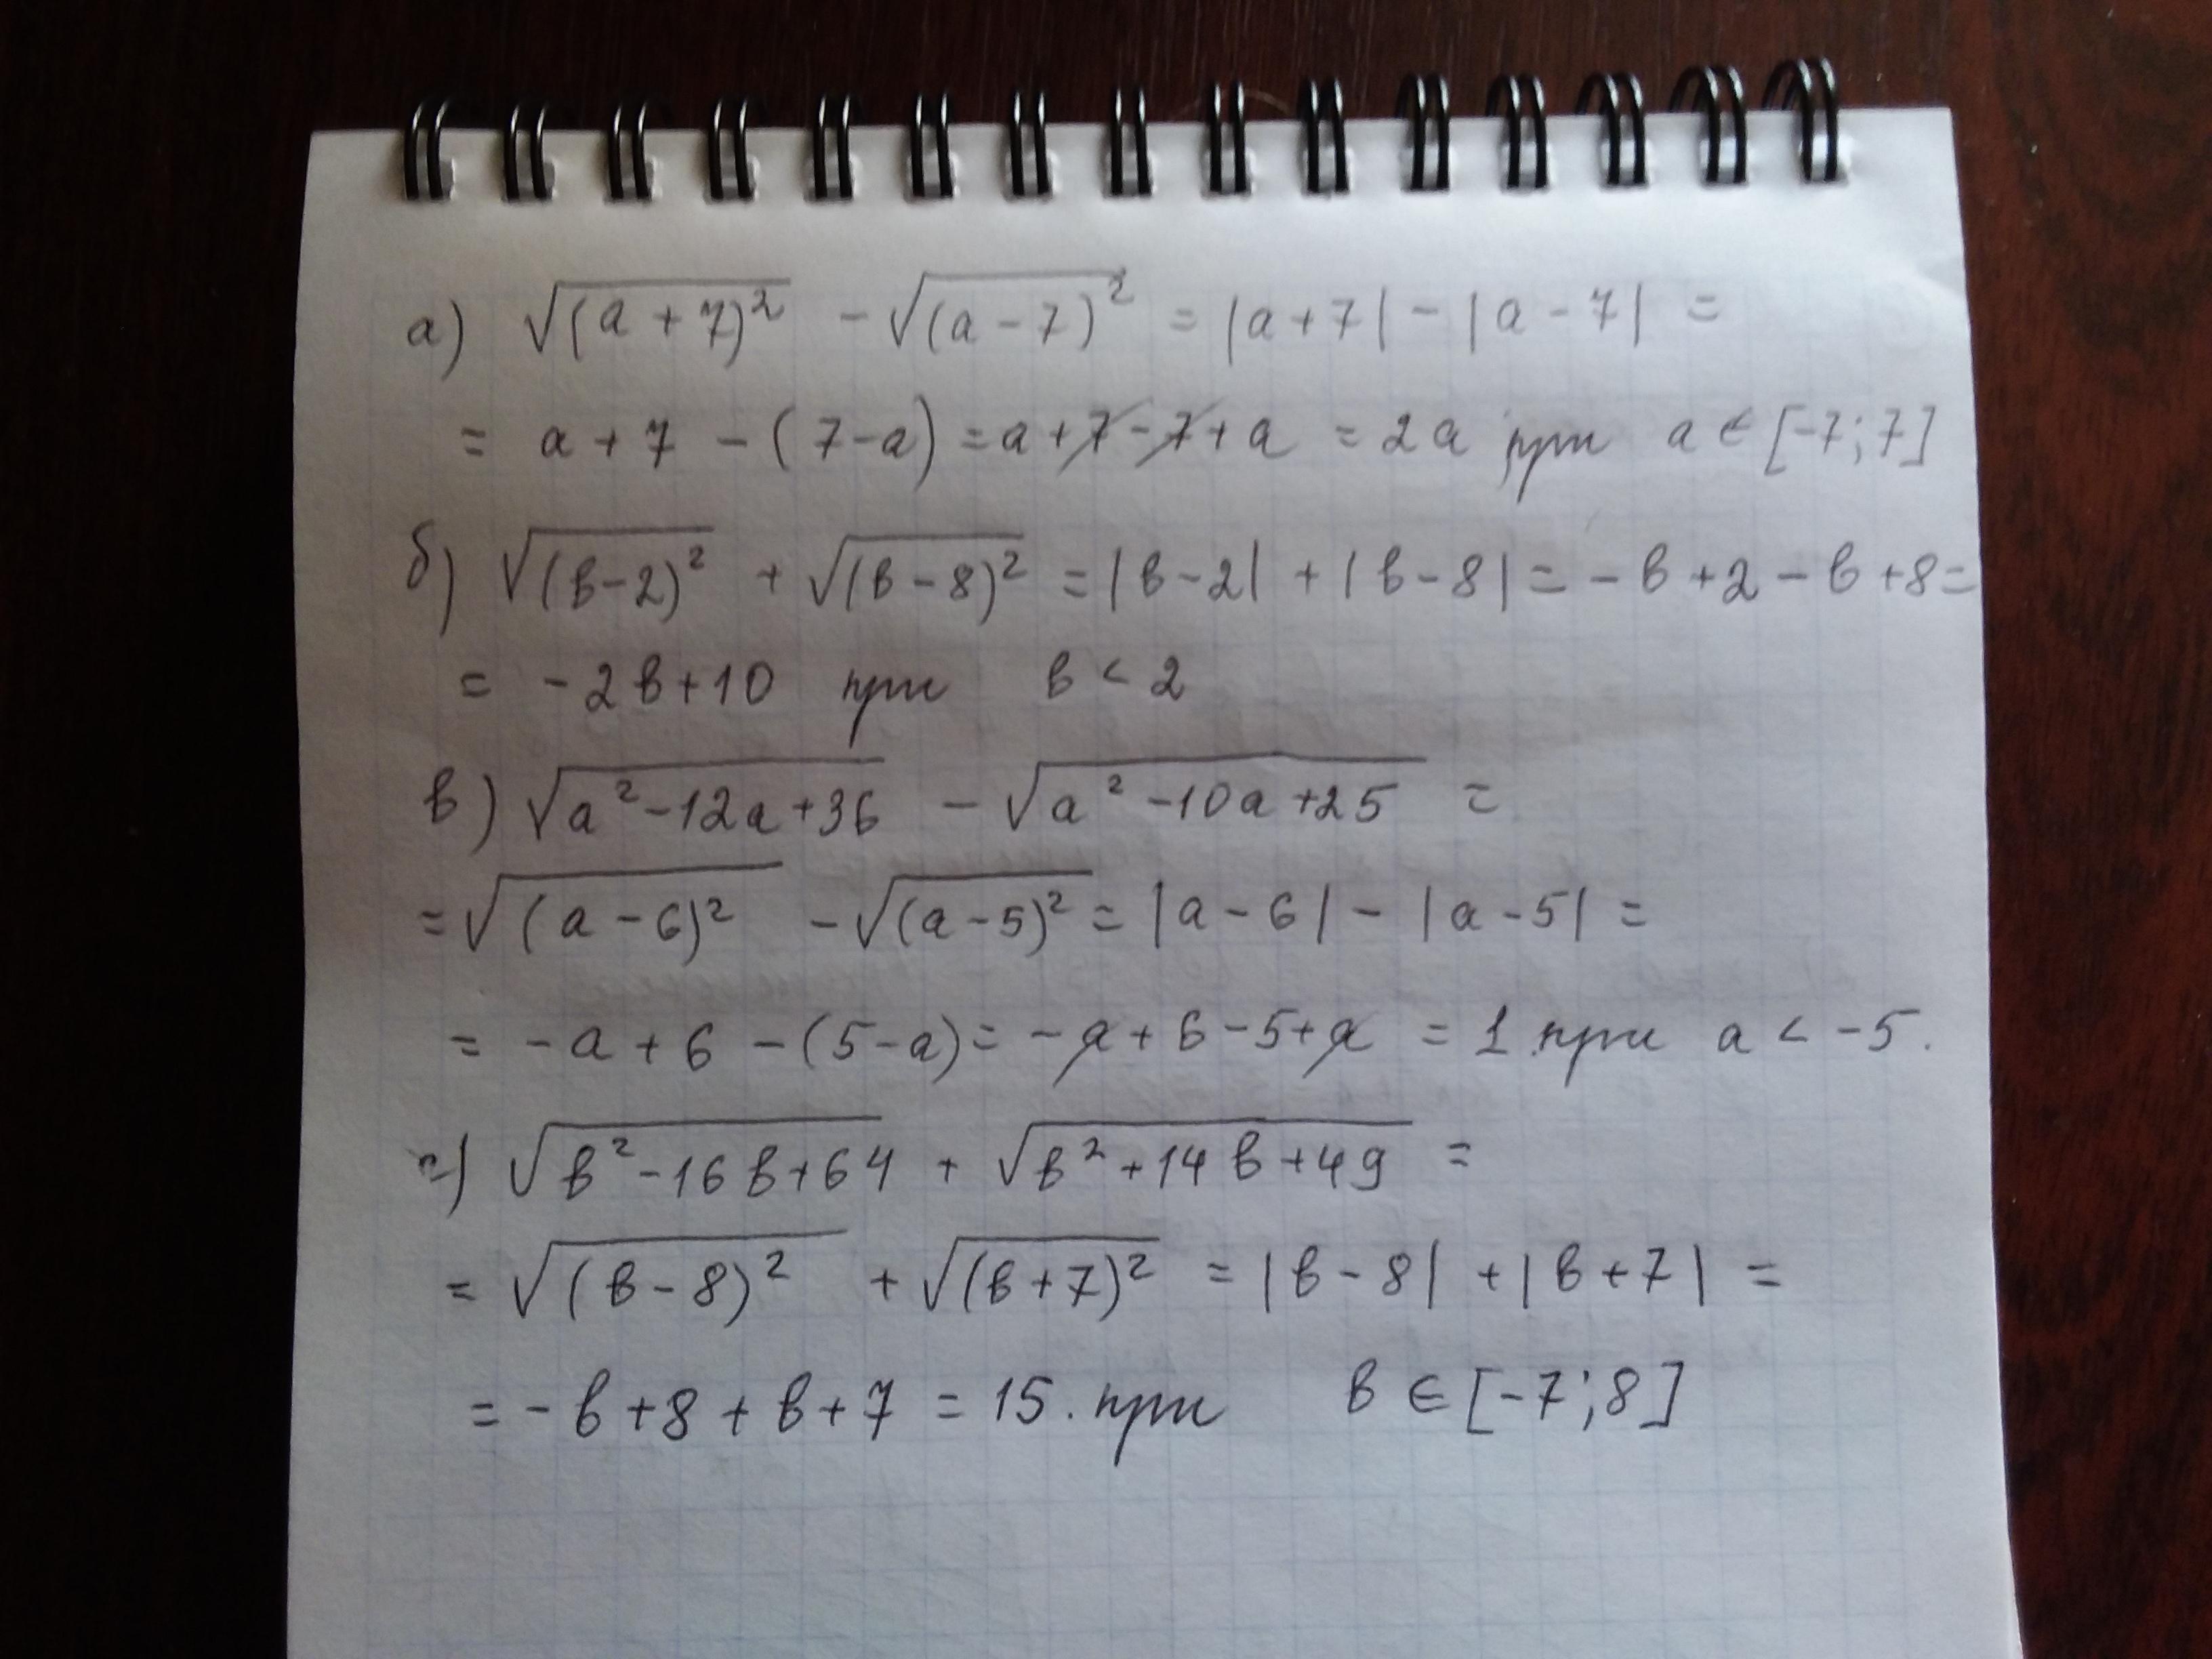 а) √(a+7)² - √(a-7)² = |a+7| - |a-7| =
= a+7 - (7-a) = a+7-7+a = 2a при a ∈ [-7;7]
б) √(в-2)² + √(в-8)² = |в-2| + |в-8| = -в+2-в+8=
= -2в+10 при в < 2
в) √a²-12a+36 - √a²-10a+25 =
= √(a-6)² - √(a-5)² = |a-6| - |a-5| =
= -a+6 - (5-a) = -a+6-5+a = 1 при a < -5.
г) √в²-16в+64 + √в²+14в+49 =
= √(в-8)² + √(в+7)² = |в-8| + |в+7| =
= -в+8+в+7 = 15. при в ∈ [-7;8]